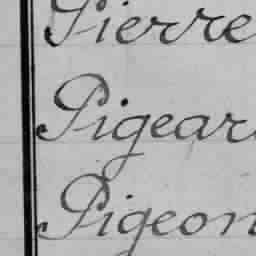 Pierre
Pigear
Pigeon